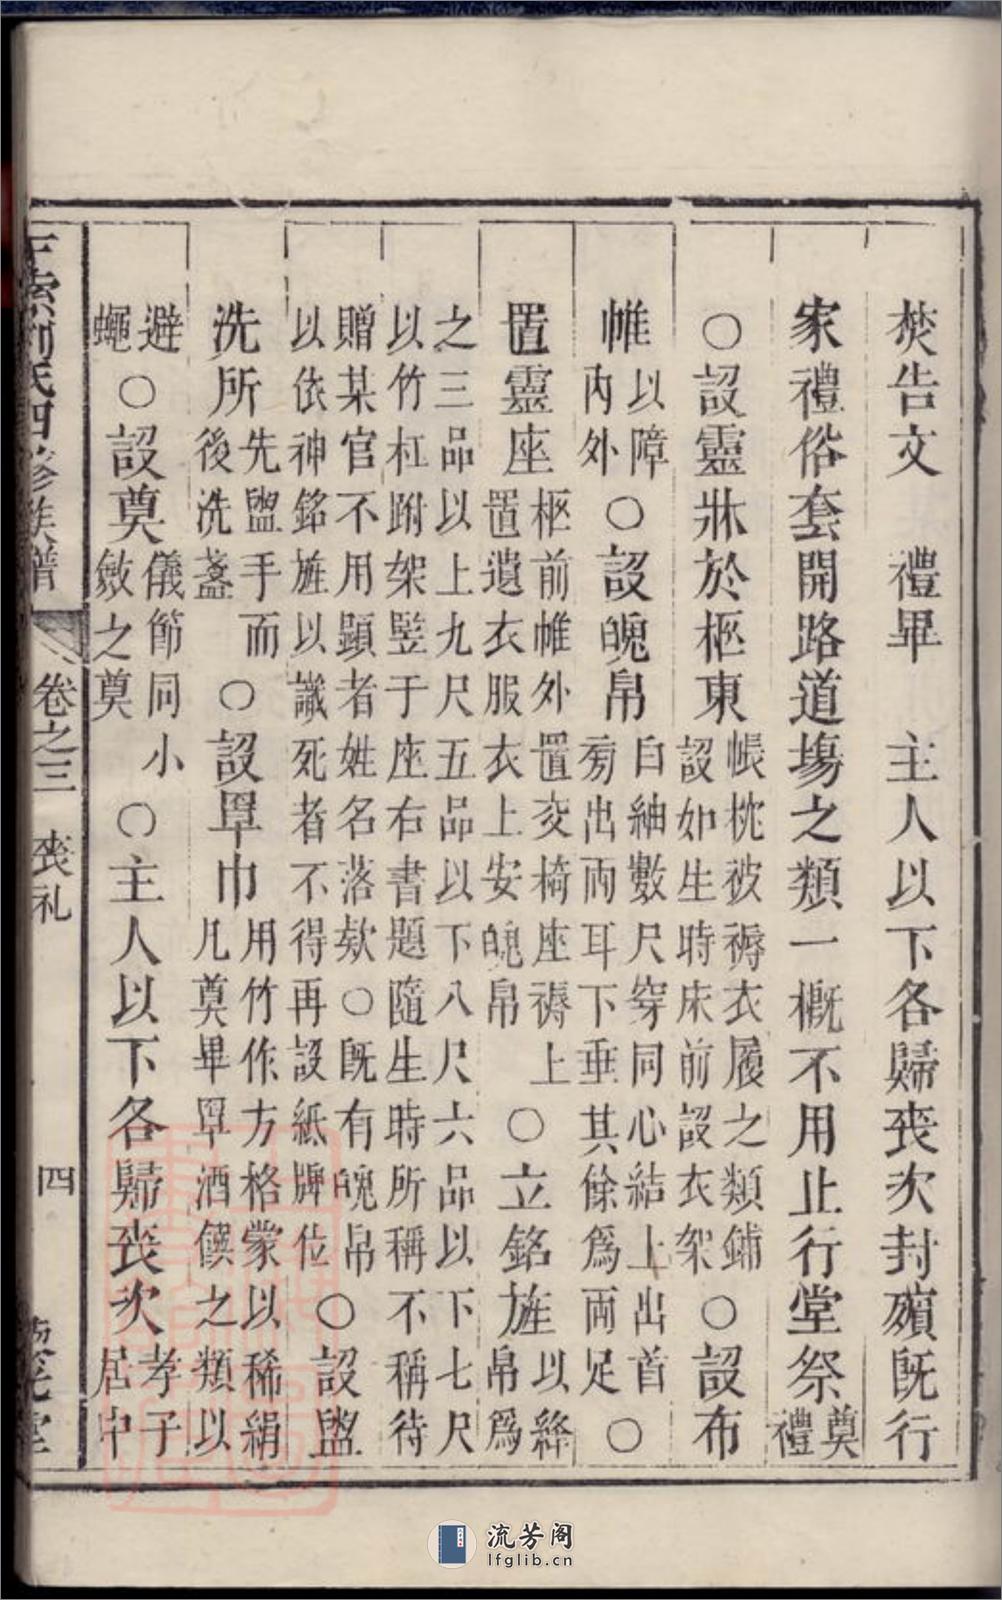 焚告文　禮畢　主人以下各歸喪次封殯既行
家禮俗套開路道塲之類一概不用止行堂祭奠禮
○設靈牀於柩東帳枕被褥衣履之類鋪設如生時床前設衣架○設布
帷以障內外○設魄帛白紬數尺穿同心結上出首旁出兩耳下垂其餘爲兩足○
置靈座柩前帷外置交椅座褥上置遺衣服衣上安魄帛○立銘旌以絳帛爲
之三品以上九尺五品以下八尺六品以下七尺以竹杠跗架竪于座右書題隨生時所稱不稱待
贈某官不用顕者姓名落欵○既有魄帛以依神銘旌以識死者不得再設紙牌位○設盥
洗所先盥手而後洗盞○設罩巾用竹作方格蒙以稀絹凡奠畢罩酒饌之類以
避蠅○設奠儀節同小斂之奠○主人以下各歸喪次孝子居中
氏四修族譜
卷之三　喪礼
四
堂
流芳阁
lfglib.cn